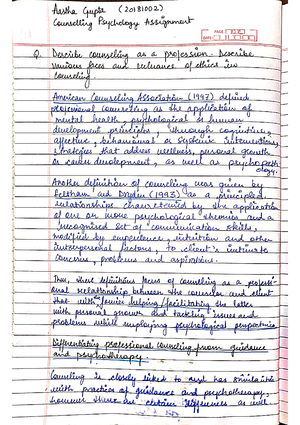 Aastha Gupta (20181002)
Counselling Psychology Assignment
PAGE
DATE
Q. Describe counseling as a profession. Describe
various faces and relevance of ethics in
counseling.
American Counseling Association (1997) defined
professional counseling as the application of
mental health, psychological or human
development principles, through cognitive,
affective, behavioural or systemic interventions,
strategies that address wellness, personal growth
or career development, as well as psychopath
ology.
Another definition of counseling was given by
Feltham and Dryden (1993) as a principled
relationship characterized by the application
of one or more psychological theories and a
recognised set of communication skills,
modified by experience, intuition and other
interpersonal factors to client's intimate
concerns, problems and aspirations.
Thus, these definitions focus of counselling as a professi-
onal relationship between the counselor and client
that with former helping/facilitating the latter
with personal growth and tackling issues and
problems while employing psychological perspectives.
Differentiating professional counseling from guidance
and psychotherapy
Counseling is closely linked to and has similarities
with practice of guidance and psychotherapy,
however there are certain differences as well.